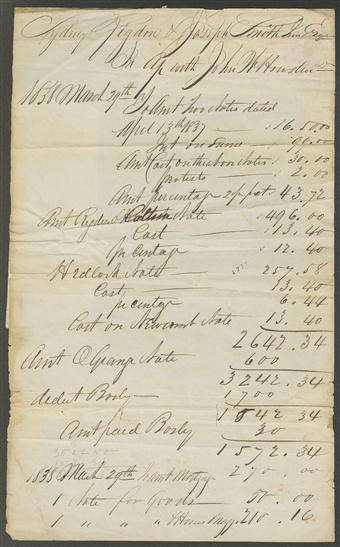 Sydney Rigdon & Joseph Smith Jun
In Ap with John W Howden Dr
1838 March 29th To Amt two Notes dated
April 13th 1837 — $ 16.50.00
Int on same " 99.00
Amt Cost, on the above Notes " 30.00
protests " 2.00
Amt percentage 2 1/2 pct " 43.72
Amt Rigdon Note " 496.00
Cost " 13.40
percentage " 12.40
Hedlock Note — 257.58
Cost — 13.40
pcentage 6.44
Cost on Newcomb Note 13.40
2642.34
Amt O Grange Note 600
3242.34
deduct Bosly — 1700
1542 34
Amt paid Bosly 30
1572.34
1838 March 29th Mortg 270.00
1 Note for Goods — 50.00
1 " " " 1 Horse Buggy 210.16